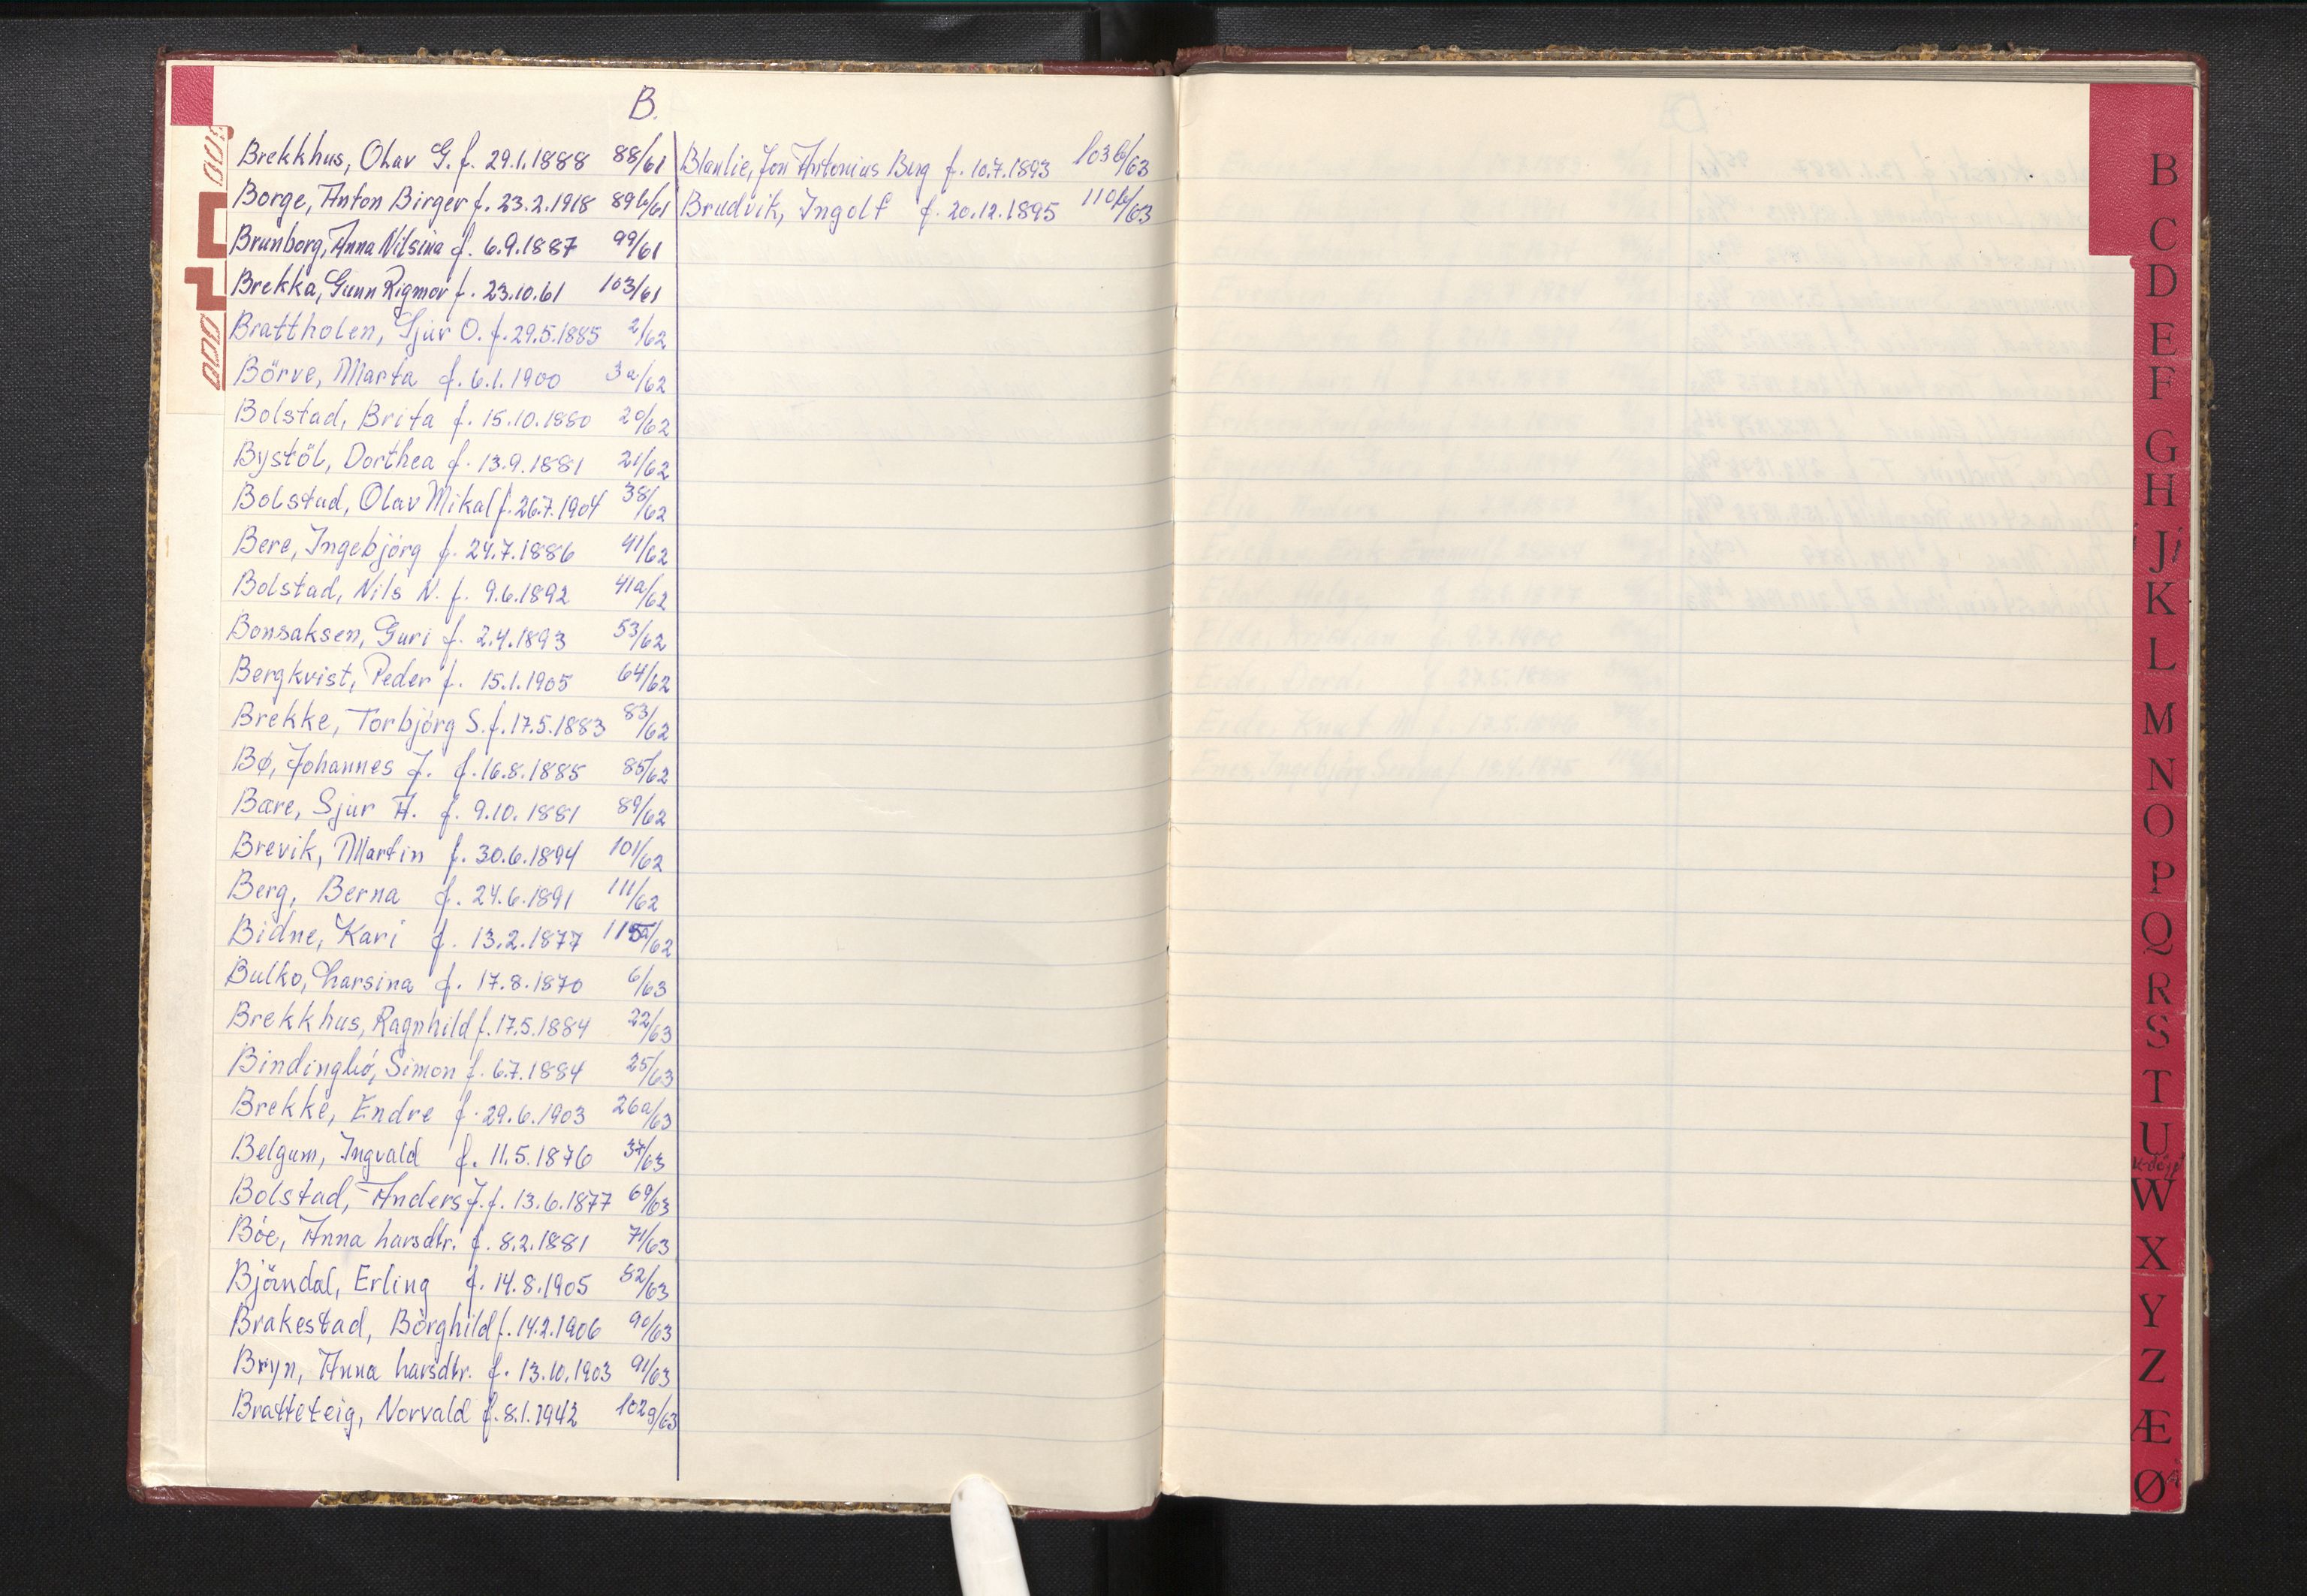 B.
Brekkhus, Olav G. f. 29.1.1888 88/61
Borge, Anton Birger f. 23.2.1918 89b/61
Brunborg, Anna Nilsina f. 6.9.1887 99/61
Brekka, Gunn Rigmor f. 23.10.61 103/61
Brattholen, Sjur O. f. 29.5.1885 2/62
Börve, Marta f. 6.1.1900 3a/62
Bolstad, Brita f. 15.10.1880 20/62
Bystöl, Dorthea f. 13.9.1881 21/62
Bolstad, Olav Mikal f. 26.7.1904 38/62
Bere, Ingebjörg f. 24.7.1886 41/62
Bolstad, Nils N. f. 9.6.1892 41a/62
Bonsaksen, Guri f. 2.4.1893 53/62
Bergkvist, Peder f. 15.1.1905 64/62
Brekke, Torbjörg S. f. 17.5.1883 83/62
Bø, Johannes J. f. 16.8.1885 85/62
Bære, Sjur A. f. 9.10.1881 89/62
Brevik, Martin f. 30.6.1894 101/62
Berg, Berna f. 24.6.1891 111/62
Bidne, Kari f. 13.2.1877
Bulko, Larsina f. 17.8.1870 6/63
Brekkhus, Ragnhild f. 17.5.1884 22/63
Bindingbö, Simon f. 6.7.1884 25/63
Brekke, Endre f. 29.6.1903 26a/63
Belgum, Ingvald f. 11.5.1876 37/63
Bolstad, Anders J. f. 13.6.1877 69/63
Böe, Anna Larsdtr. f. 8.2.1881 71/63
Bjöndal, Erling f. 14.8.1905 82/63
Brakestad, Börghild f. 14.2.1906 90/63
Bryn, Anna Larsdtr. f. 13.10.1903 91/63
Bratteteig, Norvald f. 8.1.1942 102g/63
Blanlie, Jon Antonius Berg f. 10.7.1893 103b/63
Brudvik, Ingolf f. 20.12.1895 110b/63
B
C
D
E
F
G
H
J
K
L
M
N
O
P
Q
R
S
T
U
W
X
Y
Z
Æ
Ø